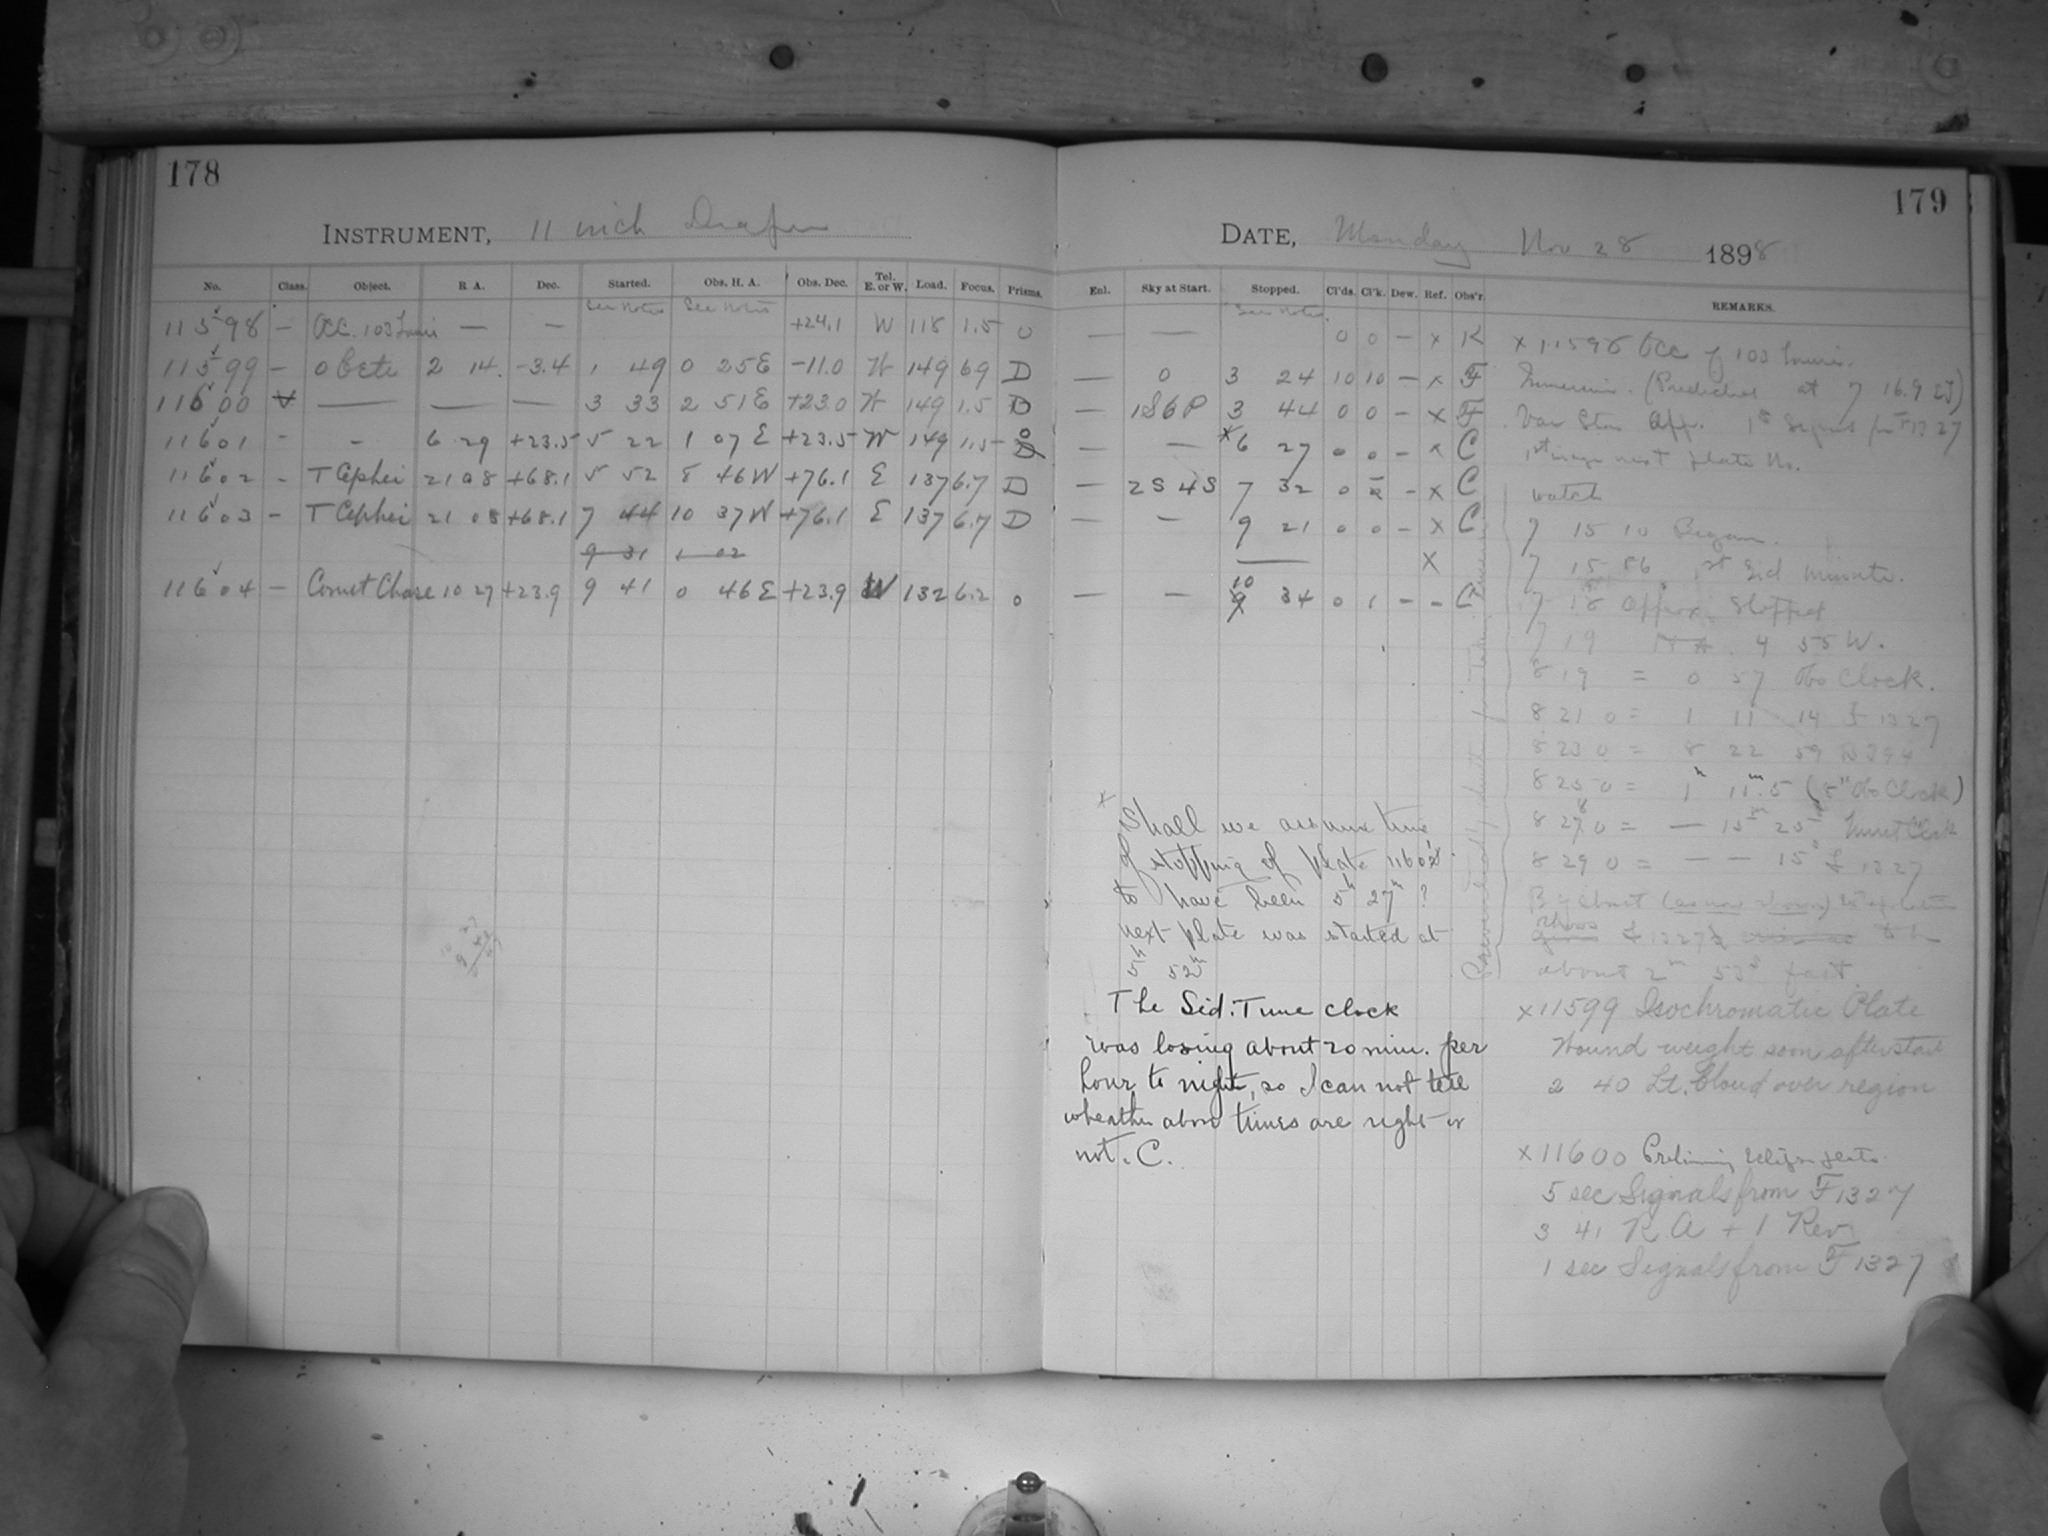 178
INSTRUMENT, 11 inch Draper
No. Class. Object. R. A. Dec. Started. Obs. H. A. Obs. Dec. Tel. E. or W. Load. Focus. Prisms.
See Notes See Notes
11598 — Occ. 103 Tauri — — +24.1 W 118 1.5 0
11599 — o Ceti 2 14. -3.4 1 49 0 25 E -11.0 W 149 69 D
11600 — — — 3 33 2 51 E +23.0 W 149 1.5 D
11601 - - 6 29 +23.5 5 22 1 07 E +23.5 W 149 1.5 0
11602 - T Cephei 21 08 +68.1 5 52 8 46 W +76.1 E 137 6.7 D
11603 - T Cephei 21 08 +68.1 7 44 10 37 W +76.1 E 137 6.7 D
9 31 1 02
11604 — Comet Chase 10 27 +23.9 9 41 0 46 E +23.9 W 132 6.2 0
179
DATE, Monday Nov 28 1898
Enl. Sky at Start. Stopped. Cl'ds. Cl'k. Dew. Ref. Obs'r. REMARKS.
See Notes.
— — 0 0 — x K
— 0 3 24 10 10 — x F
— 1S6P 3 44 0 0 - x F
— — x6 27 0 0 - x C
— 2S 4S 7 32 0 - x C
— — 9 21 0 0 - x C
— X
— — 10 34 0 1 - - C
x 11598 Occ of 103 Tauri.
Immersion. (Predicted at 7 16.9 )
Var Star App. 1s Signals fr F1327
1st image next plate No.
watch
7 15 10 Began.
7 15 56 1st Sid minute.
7 18 Approx. Stopped
7 19 H A. 4 55 W.
8 19 = 0 57 Obs Clock.
8 21 0 = 1 11 14 F 1327
8 23 0 = 8 22 59
8 25 0 = 1h 11m.5 (5" Obs Clock)
8 27 0 = — 15m 25s
8 29 0 = — — 15s F 1327
about 2m 53s fast
x 11599 Isochromatic Plate
Wound weight soon after start
2 40 Lt. Cloud over region
x 11600
5 sec Signals from F 1327
3 41 R.A + 1 Rev
1 sec Signals from F 1327
x
Shall we assume time
of stopping of plate
to have been 5h 27m ?
next plate was started at
5h 52m
The Sid. Time clock
was losing about 20 min. per
hour to night, so I can not tell
wheather above times are right or
not. C.